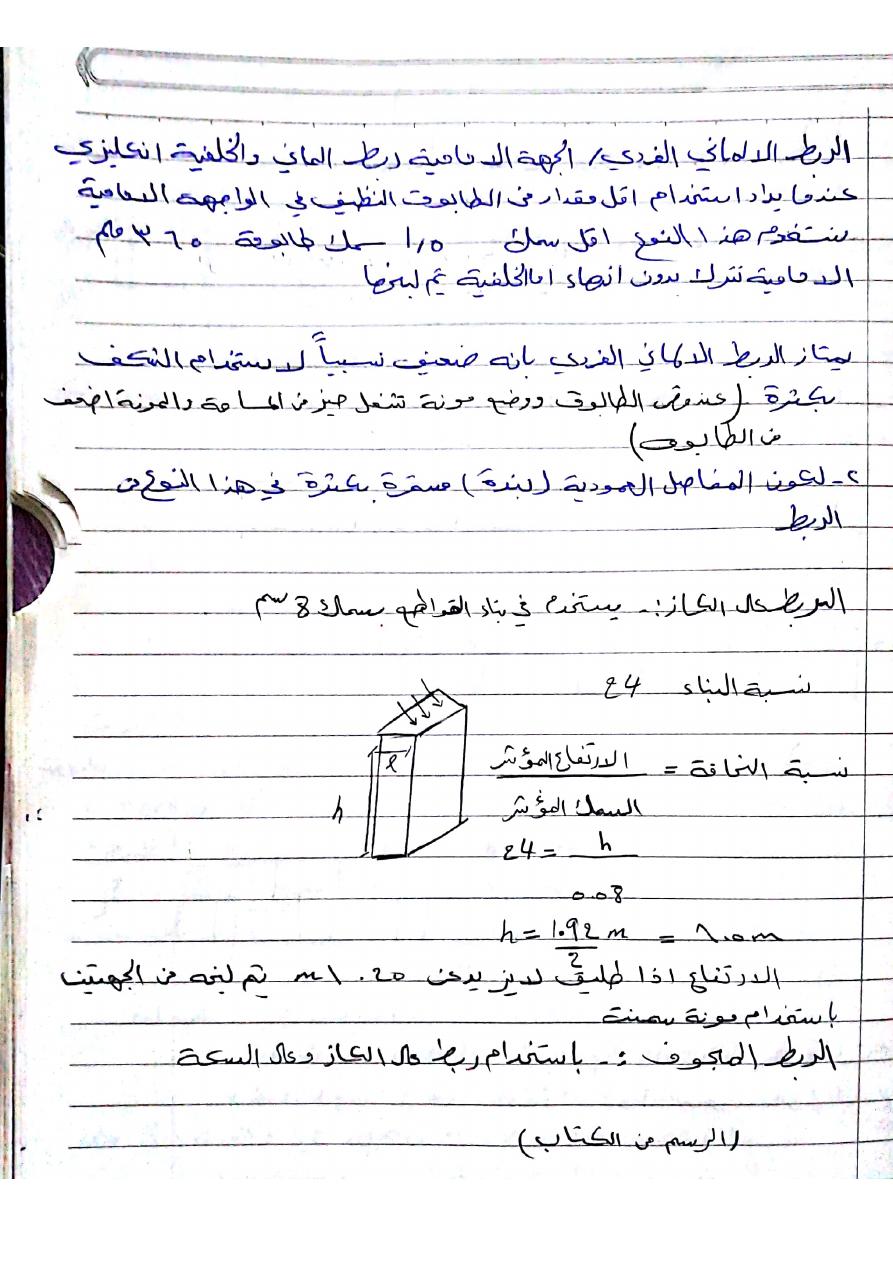 الربط الالماني الفردي / الجهة الامامية ربط الماني والخلفية انكليزي
عندما يراد استخدام اقل مقدار من الطابوق النظيف في الواجهة الامامية
يستخدم هذا النوع اقل سمك ١,٥ سمك طابوقة ٣٦٥ ملم
الامامية تترك بدون انهاء اما الخلفية يتم لبخها
يمتاز الربط الالماني الفردي بانه ضعيف نسبياً لاستخدام الكف
بكثرة (عند قص الطابوق ووضع مونة تشغل حيز من المساحة والمونة اضعف
من الطابوق)
٢- لكون المفاصل العمودية (لبندة) مستمرة بكثرة في هذا النوع من
الربط
الربط عال الكاز :- يستخدم في بناء القواطع بسمك 8 سم
نسبة البناء 24
نسبة النحافة = الارتفاع المؤثر
السمك المؤثر
24 = h
0.08
h l
h = 1.92 m =
2
الارتفاع اذا طليق لا يزيد عن 1.20 m يتم لبخه من الجهتين
باستخدام مونة سمنت
الربط المجوف :- باستخدام ربط عال الكاز وعال السعة
(الرسم من الكتاب)